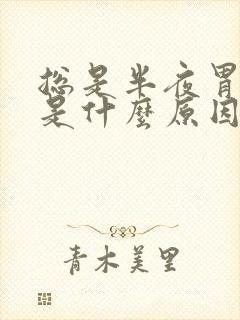 总是半夜胃
是什麼原因
青木美里